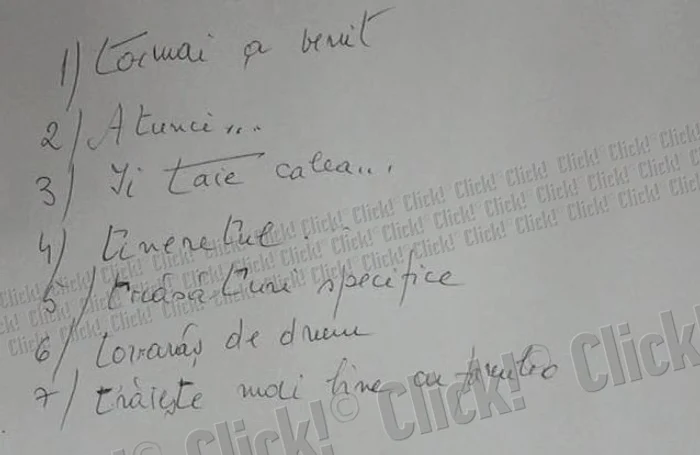 1) tocmai a venit
2) Atunci...
3) Îi taie calea...
4) tineretul...
5) trăsături specifice
6) tovarăș de drum
7) trăiește mai bine cu
Click! Click! Click! Click! Click! Click! Click!
Click! © Click! © Click!